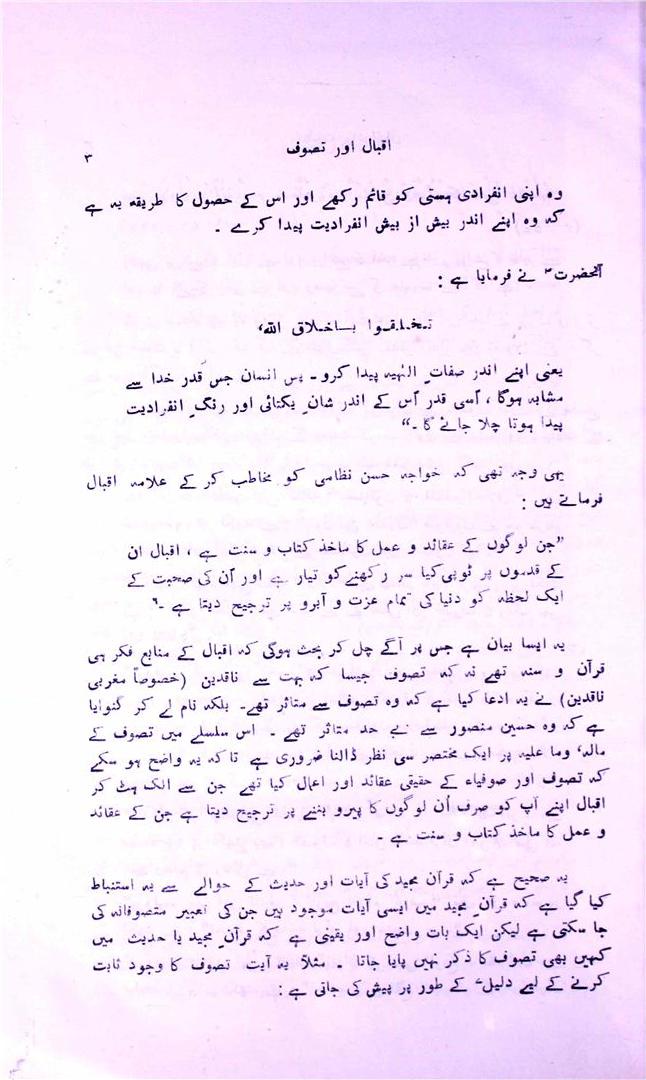 اقبال اور تصوف
۳
وہ اپنی انفرادی ہستی کو قائم رکھے اور اس کے حصول کا طریقہ یہ ہے
کہ وہ اپنے اندر بیش از بیش انفرادیت پیدا کرے ۔
آنحضرت ؐ نے فرمایا ہے :
تخلقوا باخلاق اللہ،
یعنی اپنے اندر صفاتِ الٰہیہ پیدا کرو۔ پس انسان جس قدر خدا سے
مشابہ ہوگا ، اُسی قدر اُس کے اندر شانِ یکتائی اور رنگِ انفرادیت
پیدا ہوتا چلا جائے گا ۔“
یہی وجہ تھی کہ خواجہ حسن نظامی کو مخاطب کر کے علامہ اقبال
فرماتے ہیں :
”جن لوگوں کے عقائد و عمل کا ماخذ کتاب و سنت ہے ، اقبال ان
کے قدموں پر ٹوپی کیا سر رکھنے کو تیار ہے اور اُن کی صحبت کے
ایک لحظہ کو دنیا کی تمام عزت و آبرو پر ترجیح دیتا ہے ۔“
یہ ایسا بیان ہے جس پر آگے چل کر بحث ہوگی کہ اقبال کے منابع فکر ہی
قرآن و سنہ تھے نہ کہ تصوف جیسا کہ بہت سے ناقدین (خصوصاً مغربی
ناقدین) نے یہ ادعا کیا ہے کہ وہ تصوف سے متاثر تھے۔ بلکہ نام لے کر گنوایا
ہے کہ وہ حسین منصور سے بے حد متاثر تھے ۔ اس سلسلے میں تصوف کے
مالہ، وما علیہ پر ایک مختصر سی نظر ڈالنا ضروری ہے تاکہ یہ واضح ہو سکے
کہ تصوف اور صوفیاء کے حقیقی عقائد اور اعمال کیا تھے جن سے الگ ہٹ کر
اقبال اپنے آپ کو صرف اُن لوگوں کا پیرو بننے پر ترجیح دیتا ہے جن کے عقائد
و عمل کا ماخذ کتاب و سنت ہے ۔
یہ صحیح ہے کہ قرآن مجید کی آیات اور حدیث کے حوالے سے یہ استنباط
کیا گیا ہے کہ قرآنِ مجید میں ایسی آیات موجود ہیں جن کی تعبیر متصوفانہ کی
جا سکتی ہے لیکن ایک بات واضح اور یقینی ہے کہ قرآنِ مجید یا حدیث میں
کہیں بھی تصوف کا ذکر نہیں پایا جاتا ۔ مثلاً یہ آیت تصوف کا وجود ثابت
کرنے کے لیے دلیل کے طور پر پیش کی جاتی ہے :